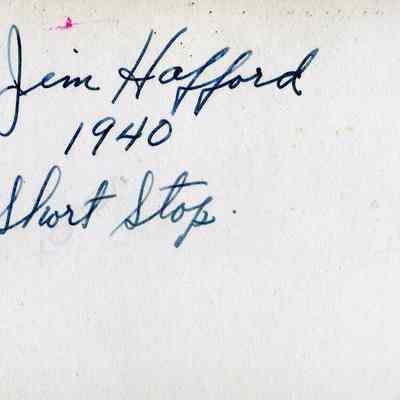 Jim Hafford
1940
Short Stop.